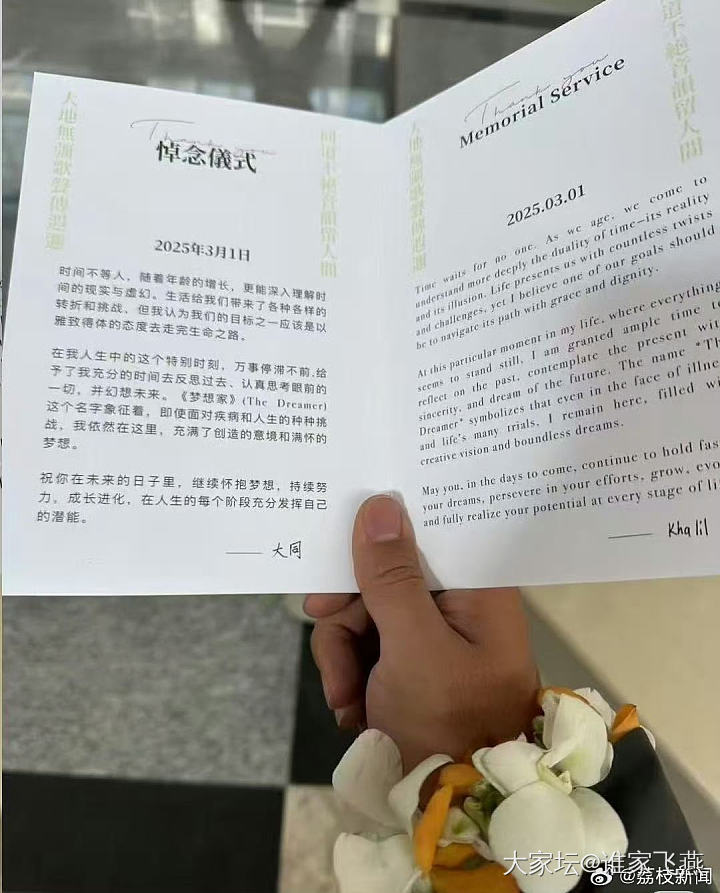 Thank you
悼念儀式
2025年3月1日
时间不等人，随着年龄的增长，更能深入理解时
间的现实与虚幻。生活给我们带来了各种各样的
转折和挑战，但我认为我们的目标之一应该是以
雅致得体的态度去走完生命之路。
在我人生中的这个特别时刻，万事停滞不前,给
予了我充分的时间去反思过去、认真思考眼前的
一切，并幻想未来。《梦想家》(The Dreamer)
这个名字象征着，即使面对疾病和人生的种种挑
战，我依然在这里，充满了创造的意境和满怀的
梦想。
祝你在未来的日子里，继续怀抱梦想，持续努
力，成长进化，在人生的每个阶段充分发挥自己
的潜能。
—— 大同
Thank you
Memorial Service
2025.03.01
Time waits for no one. As we age, we come to
understand more deeply the duality of time—its reality
and its illusion. Life presents us with countless twists
and challenges, yet I believe one of our goals should
be to navigate its path with grace and dignity.
At this particular moment in my life, where everything
seems to stand still, I am granted ample time to
reflect on the past, contemplate the present with
sincerity, and dream of the future. The name "Th
Dreamer" symbolizes that even in the face of illne
and life's many trials, I remain here, filled w
creative vision and boundless dreams.
May you, in the days to come, continue to hold fas
your dreams, persevere in your efforts, grow, evo
and fully realize your potential at every stage of li
—— Khalil
道不絕音韻留人間
大家坛@谁家飞燕
@荔枝新闻